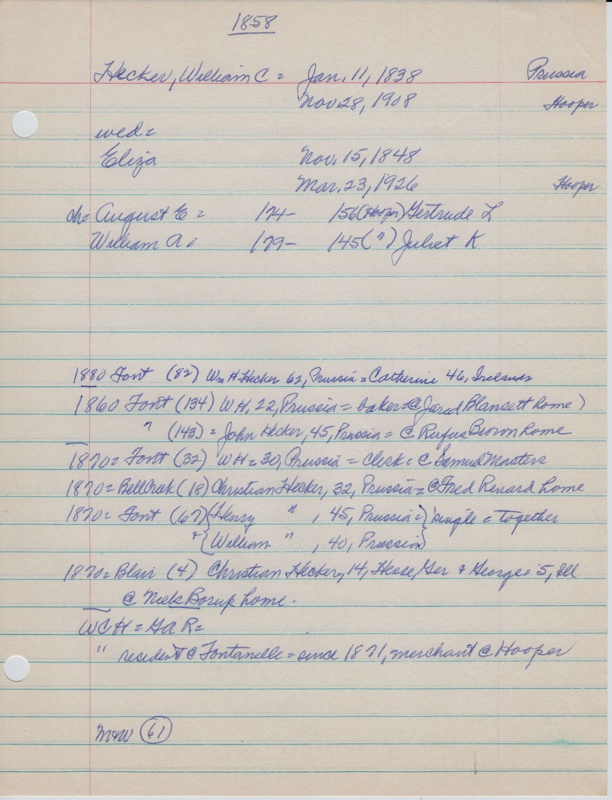 1858
Hecker, William C = Jan. 11, 1838 Prussia
Nov. 28, 1908 Hooper
wed =
Eliza Nov. 15, 1848
Mar. 23, 1926 Hooper
ch = August E = 174- 156 (Hooper) Gertrude L
William A = 179- 145 ( " ) Juliet K
1880 Font (82) Wm H Hecker 62, Prussia = Catherine 46, Ireland
1860 Font (134) WH, 22, Prussia = baker = @ Jared Blansett home)
" (143) = John Hecker, 45, Prussia = @ Rufus Brown home
1870 = Font (32) WH = 30, Prussia = Clerk = @ Samuel Masters
1870 = Bell Creek (18) Christian Hecker, 32, Prussia = @ Fred Renard home
1870 = Font (67) { Henry " , 45, Prussia = } single = together
& { William " , 40, Prussia }
1870 = Blair (4) Christian Hecker, 14, Hesse, Ger & George = 5, Ill
@ Niels Borup home.
WCH = GAR =
" resident @ Fontanelle = since 1871, merchant @ Hooper
M&W (61)